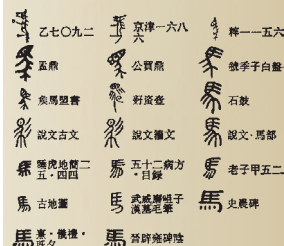 乙七〇九二
京津一六八
六
粹一一五六
盂鼎
公貿鼎
虢季子白盤
侯馬盟書
石鼓
說文古文
說文籀文
說文·馬部
睡虎地簡二
五·四四
五十二病方
·目錄
老子甲五二
古地圖
武威
漢墓
史晨碑
熹·儀禮·
既夕
晉辟雍碑陰